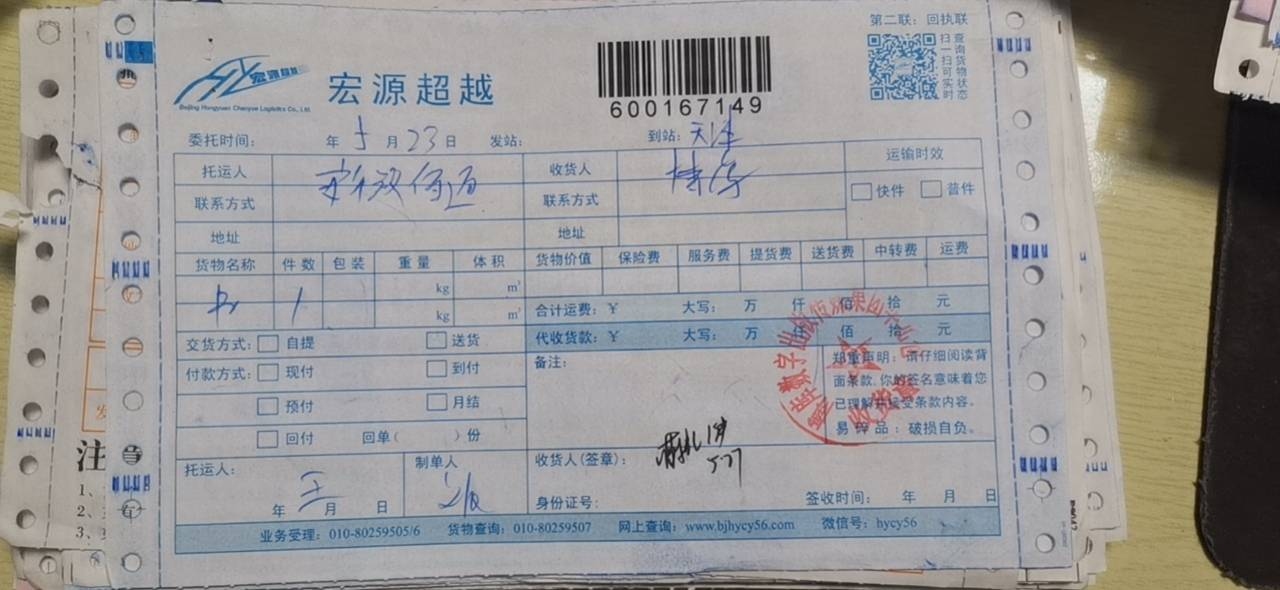 第二联：回执联
扫查
一询
扫货
可物
实状
时态
宏源超越
Beijing Hongyuan Chaoyue Logistics Co., Ltd.
宏源超越
600167149
委托时间： 年 5 月 23 日 发站： 到站：天津
托运人 收货人 运输时效
联系方式 联系方式 快件 普件
地址 地址
货物名称 件数 包装 重量 体积 货物价值 保险费 服务费 提货费 送货费 中转费 运费
kg m³
书 1 kg m³
合计运费：￥ 大写： 万 仟 佰 拾 元
代收货款：￥ 大写： 万 仟 佰 拾 元
交货方式： 自提 送货
付款方式： 现付 到付
预付 月结
回付 回单( )份
备注：
郑重声明：请仔细阅读背
面条款,你的签名意味着您
已理解并接受条款内容。
易碎品：破损自负。
收货章
托运人： 王 年 月 日
制单人
收货人(签章)：
身份证号：
签收时间： 年 月 日
业务受理：010-80259505/6 货物查询：010-80259507 网上查询：www.bjhycy56.com 微信号：hycy56
注
1、
2、
3、